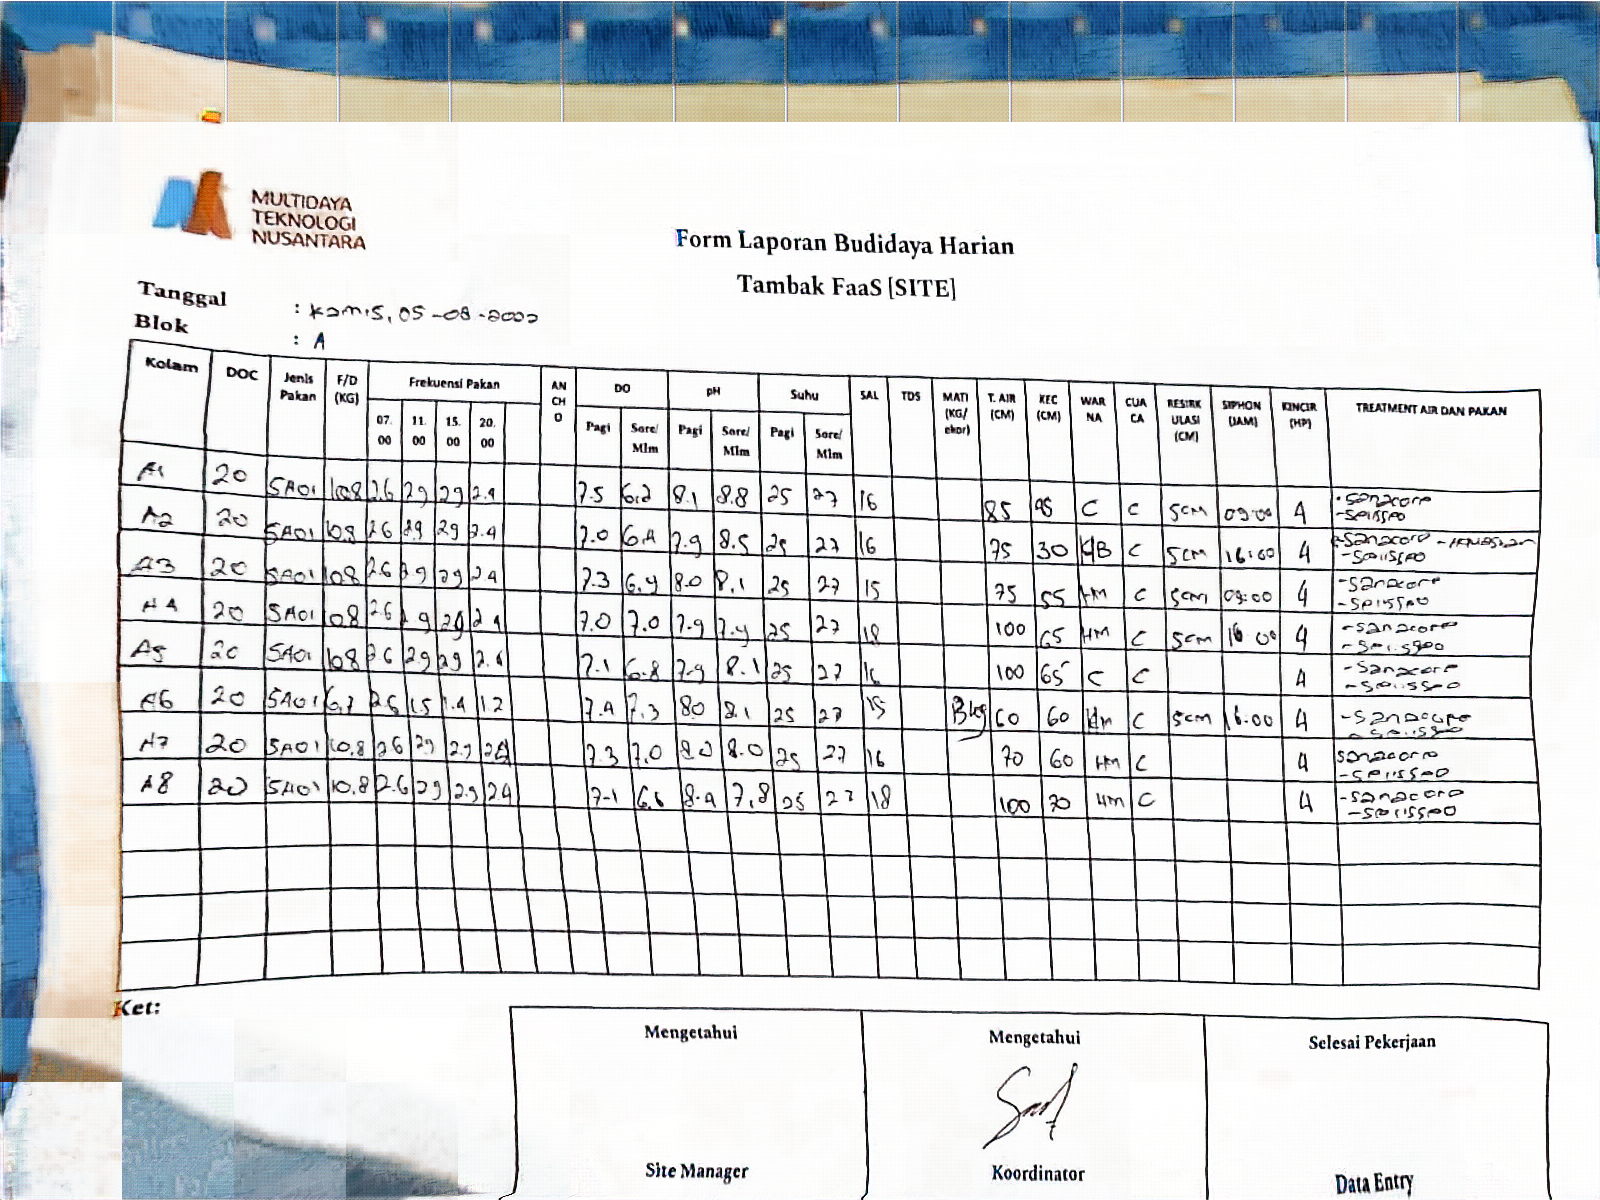 MULTIDAYA
TEKNOLOGI
NUSANTARA
Form Laporan Budidaya Harian
Tambak FaaS [SITE]
Tanggal : Kamis, 05-08-2002
Blok : A
Kolam DOC Jenis Pakan F/D (KG) Frekuensi Pakan 07.00 11.00 15.00 20.00 ANCHO DO Pagi Sore/Mlm pH Pagi Sore/Mlm Suhu Pagi Sore/Mlm SAL TDS MATI (KG/ekor) T. AIR (CM) KEC (CM) WARNA CUACA RESIRKULASI (CM) SIPHON (JAM) KINCIR (HP) TREATMENT AIR DAN PAKAN
A1 20 SA01 10.8 2.6 29 29 2.4 7.5 6.2 8.1 8.8 25 27 16 85 45 C C 5cm 09:00 4 -sanacore
-
A2 20 SA01 10.8 26 29 29 2.4 7.0 6.4 7.9 8.5 25 27 16 75 30 C 5cm 16:00 4 -sanacore
-
A3 20 SA01 108 26 29 29 24 7.3 6.9 8.0 8.1 25 27 15 75 55 HM C 5cm 09:00 4 -sanacore
-
A4 20 SA01 108 26 29 29 24 7.0 7.0 7.9 7.9 25 27 18 100 65 HM C 5cm 16 00 4 -sanacore
-
A5 20 SA01 108 26 29 29 2.4 7.1 6.8 7.9 8.1 25 27 16 100 65 C C 4 -sanacore
-
A6 20 SA01 6.7 26 1.5 1.4 1.2 7.4 7.3 80 8.1 25 27 15 60 60 Hm C 5cm 16:00 4 -sanacore
-
A7 20 SA01 10.8 26 29 29 24 7.3 7.0 8.0 8.0 25 27 16 70 60 HM C 4 sanacore
-
A8 20 SA01 10.8 2.6 29 2.9 24 7.1 6.6 8.4 7.8 25 27 18 100 70 Hm C 4 -sanacore
-
Ket:
Mengetahui Mengetahui Selesai Pekerjaan
Site Manager Koordinator Data Entry